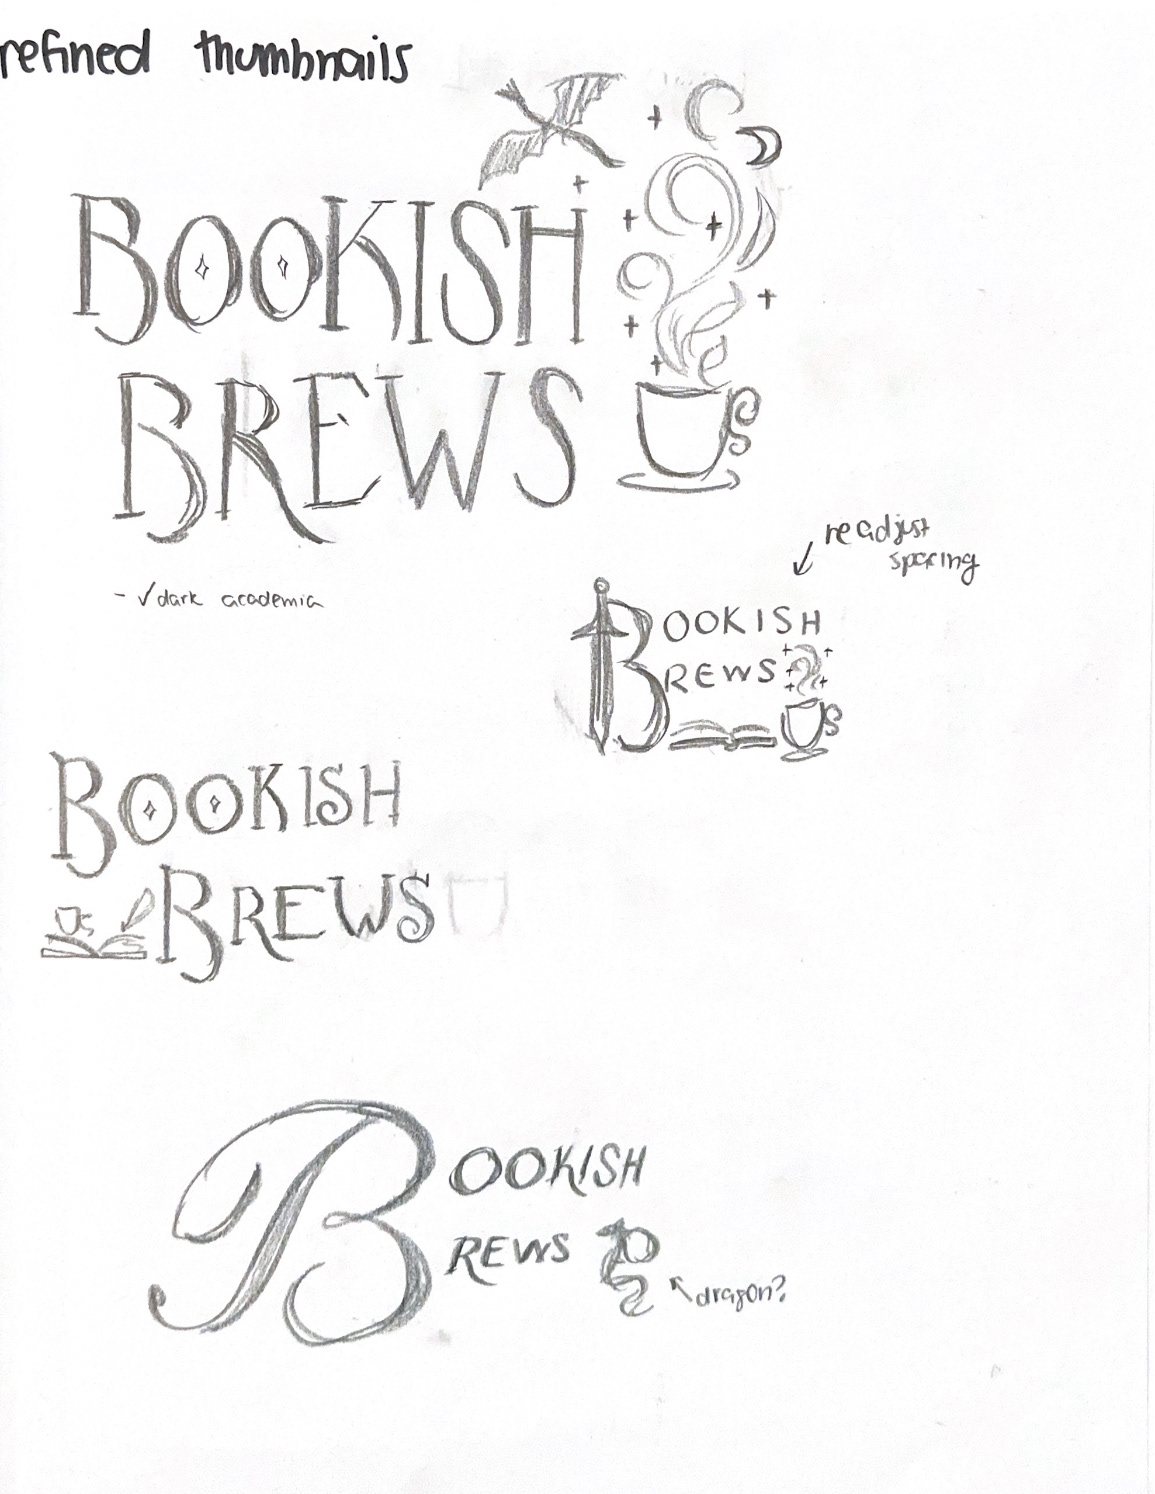 refined thumbnails
BOOKISH
BREWS
- √dark academia
readjust
spacing
BOOKISH
BREWS
BOOKISH
BREWS
BOOKISH
BREWS
dragon?